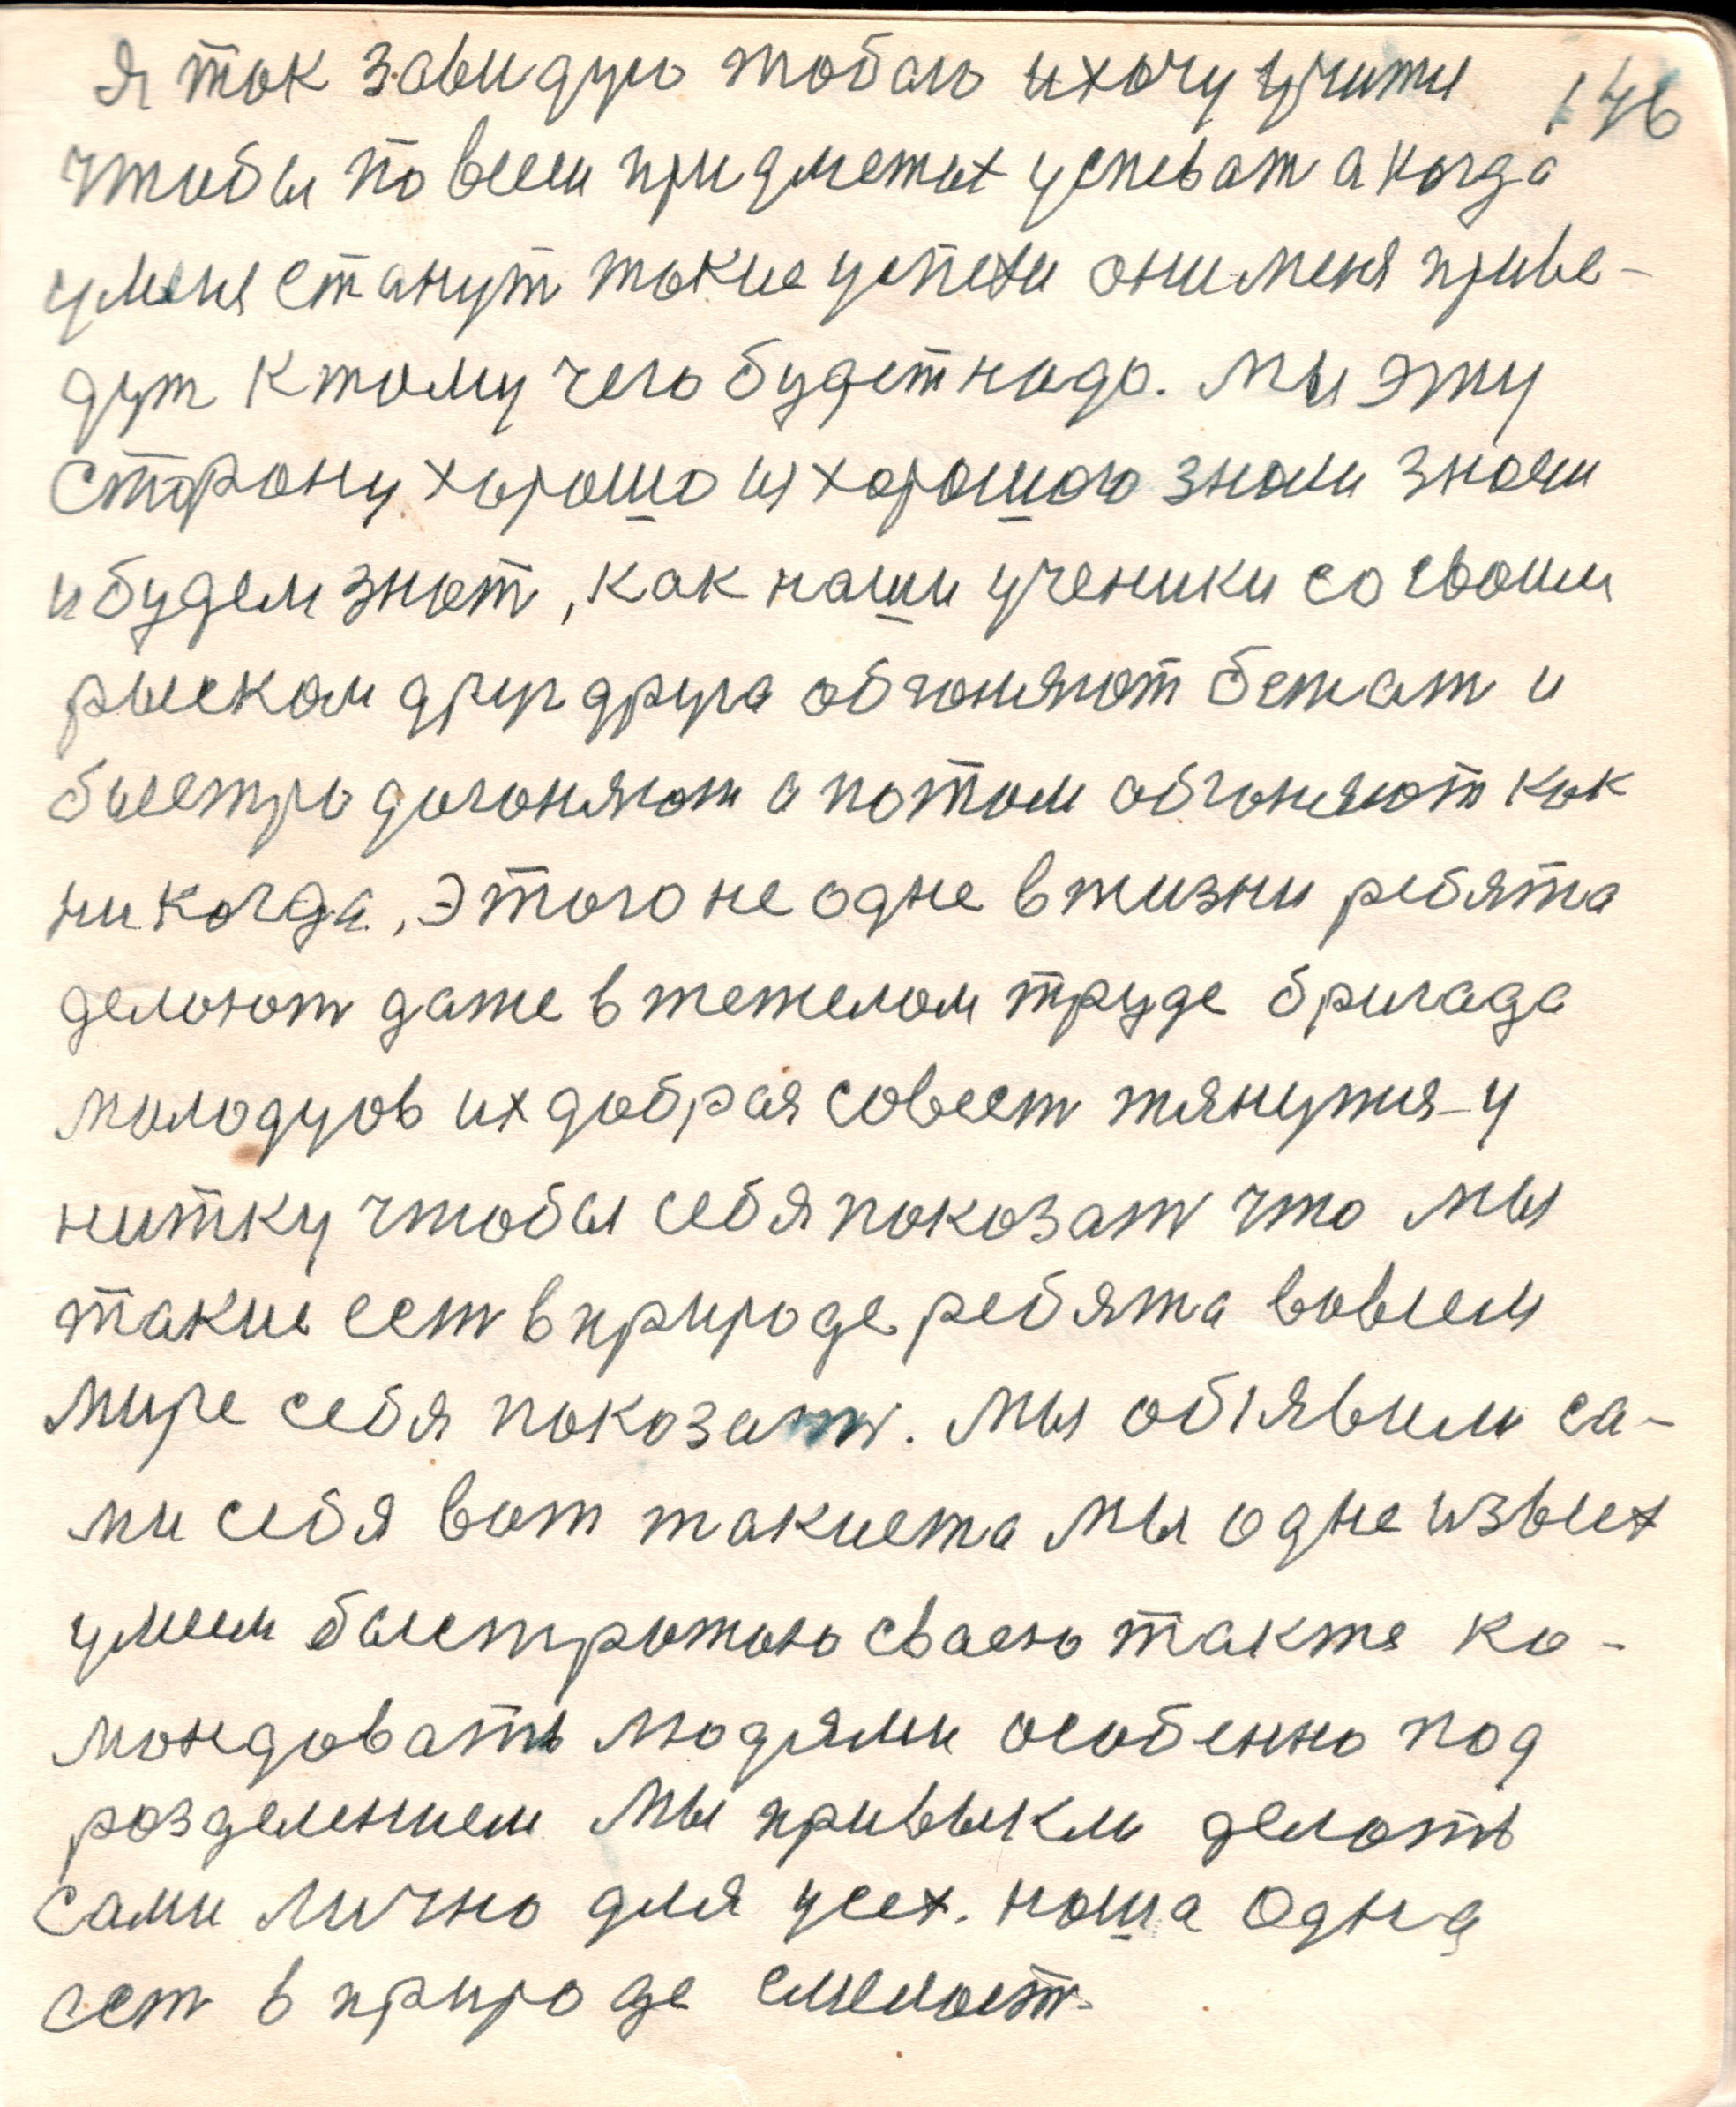 Я так завидую тобою и хочу учится 146
чтобы по всем придметах успеват а когда
у меня станут такие успехи они меня приве-
дут к тому чего будет надо. Мы эту
сторону хорошо и хорошою знали знаем
и будем знат, как наши ученики со своим
рыском друг друга обгоняют бежат и
быстро догоняют а потом обгоняют как
никогда, Этого не одне в жизни ребята
делоют даже в тежелом труде бригада
молодцов их добрая совест тянутся-у
нитку чтобы себя показат что мы
такие ест в природе ребята вовсем
мире себя показат. Мы обіявим са-
ми себя вот такиета мы одне извсех
умеем быстротою сваею также ко-
мондовать людями особенно под
розделением мы привыкли делоть
сами лично для усех. наша Одна
ест в природе смелост.